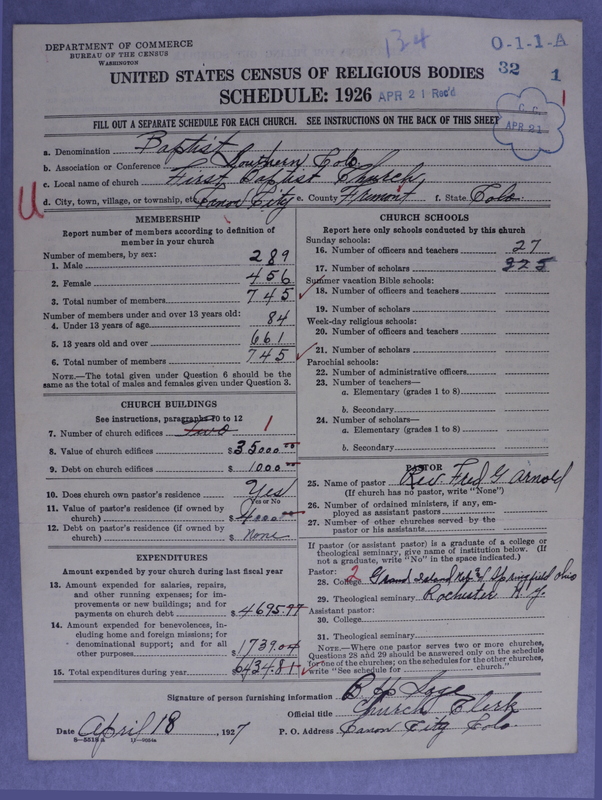 DEPARTMENT OF COMMERCE
BUREAU OF THE CENSUS
WASHINGTON
134
0-1-1-A
32
1
UNITED STATES CENSUS OF RELIGIOUS BODIES
SCHEDULE: 1926
APR 21 Rec'd
C. C.
APR 21
FILL OUT A SEPARATE SCHEDULE FOR EACH CHURCH. SEE INSTRUCTIONS ON THE BACK OF THIS SHEET
a. Denomination Baptist
b. Association or Conference Southern Colo.
c. Local name of church First Baptist Church
d. City, town, village, or township, etc. Canon City e. County Fremont f. State Colo.
U
MEMBERSHIP
Report number of members according to definition of
member in your church
Number of members, by sex:
1. Male 289
2. Female 456
3. Total number of members 745
Number of members under and over 13 years old:
4. Under 13 years of age 84
5. 13 years old and over 661
6. Total number of members 745
NOTE.—The total given under Question 6 should be the
same as the total of males and females given under Question 3.
CHURCH BUILDINGS
See instructions, paragraphs 10 to 12
7. Number of church edifices Two 1
8. Value of church edifices $35000.00
9. Debt on church edifices $ 1000.00
10. Does church own pastor's residence Yes
Yes or No
11. Value of pastor's residence (if owned by
church) $4000.00
12. Debt on pastor's residence (if owned by
church) $ None
EXPENDITURES
Amount expended by your church during last fiscal year
13. Amount expended for salaries, repairs,
and other running expenses; for im-
provements or new buildings; and for
payments on church debt $ 4695.77
14. Amount expended for benevolences, in-
cluding home and foreign missions; for
denominational support; and for all
other purposes $1739.04
15. Total expenditures during year $6434.81
CHURCH SCHOOLS
Report here only schools conducted by this church
Sunday schools:
16. Number of officers and teachers 27
17. Number of scholars 325
Summer vacation Bible schools:
18. Number of officers and teachers
19. Number of scholars
Week-day religious schools:
20. Number of officers and teachers
21. Number of scholars
Parochial schools:
22. Number of administrative officers
23. Number of teachers—
a. Elementary (grades 1 to 8)
b. Secondary
24. Number of scholars—
a. Elementary (grades 1 to 8)
b. Secondary
PASTOR
25. Name of pastor Rev. Fred G Arnold
(If church has no pastor, write "None")
26. Number of ordained ministers, if any, em-
ployed as assistant pastors
27. Number of other churches served by the
pastor or his assistants
If pastor (or assistant pastor) is a graduate of a college or
theological seminary, give name of institution below. (If
not a graduate, write "No" in the space indicated.)
Pastor:
28. College 2 Grand Island Neb. & Springfield Ohio
29. Theological seminary Rochester N. Y.
Assistant pastor:
30. College
31. Theological seminary
NOTE.—Where one pastor serves two or more churches,
Questions 28 and 29 should be answered only on the schedule
for one of the churches; on the schedules for the other churches,
write "See schedule for church."
Signature of person furnishing information B. H.
Official title Church Clerk
Date April 18, 1927 P. O. Address Canon City Colo
8-5518 a